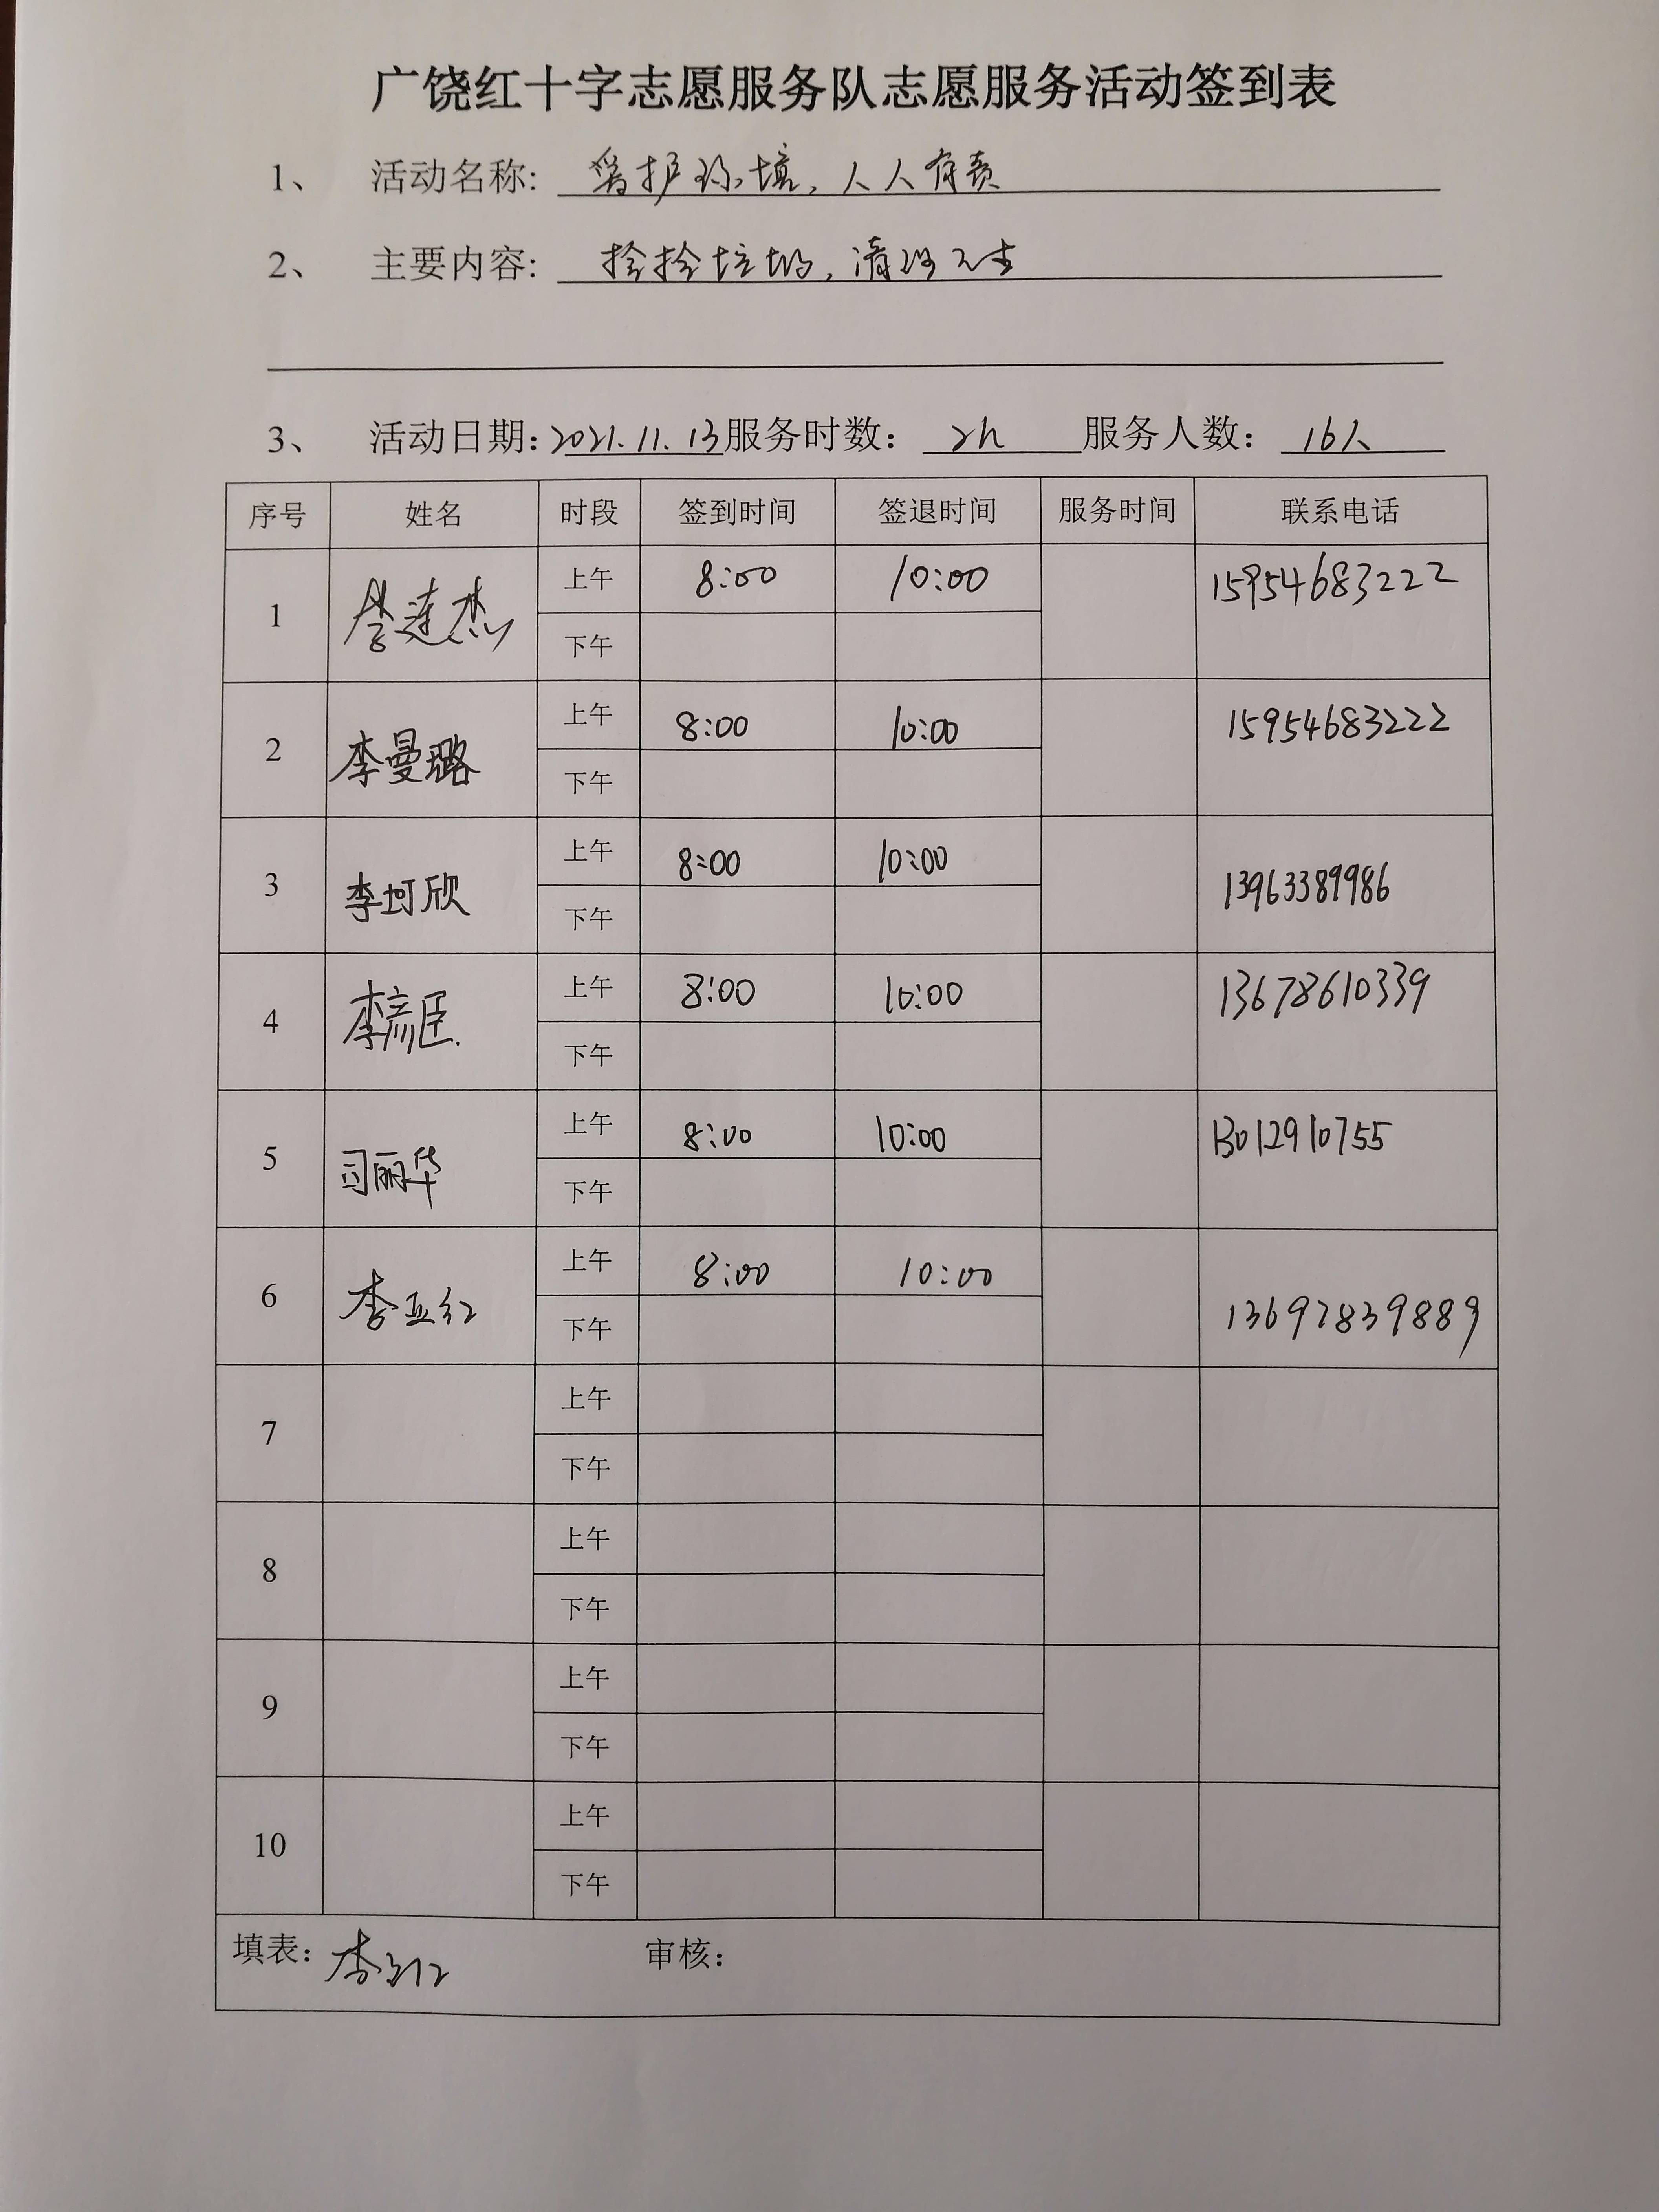 广饶红十字志愿服务队志愿服务活动签到表
1、 活动名称: 爱护环境,人人有责
2、 主要内容: 捡捡垃圾,清理卫生
3、 活动日期:2021.11.13服务时数: 2h 服务人数: 16人
序号 姓名 时段 签到时间 签退时间 服务时间 联系电话
1 李连杰 上午 8:00 10:00 15954683222
下午
2 李曼璐 上午 8:00 10:00 15954683222
下午
3 李珂欣 上午 8:00 10:00 13963389986
下午
4 李彦臣 上午 8:00 10:00 13678610339
下午
5 司丽华 上午 8:00 10:00 13012910755
下午
6 李亚红 上午 8:00 10:00 13697839889
下午
7 上午
下午
8 上午
下午
9 上午
下午
10 上午
下午
填表: 李 审核: